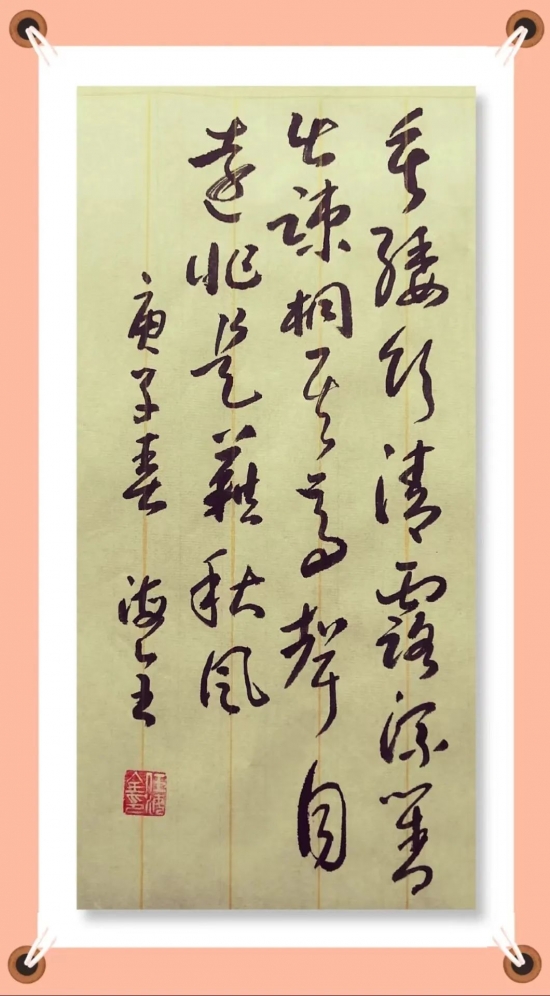 垂緌飲清露流響
出疎桐居高聲自
遠非是藉秋風
庚子春 海